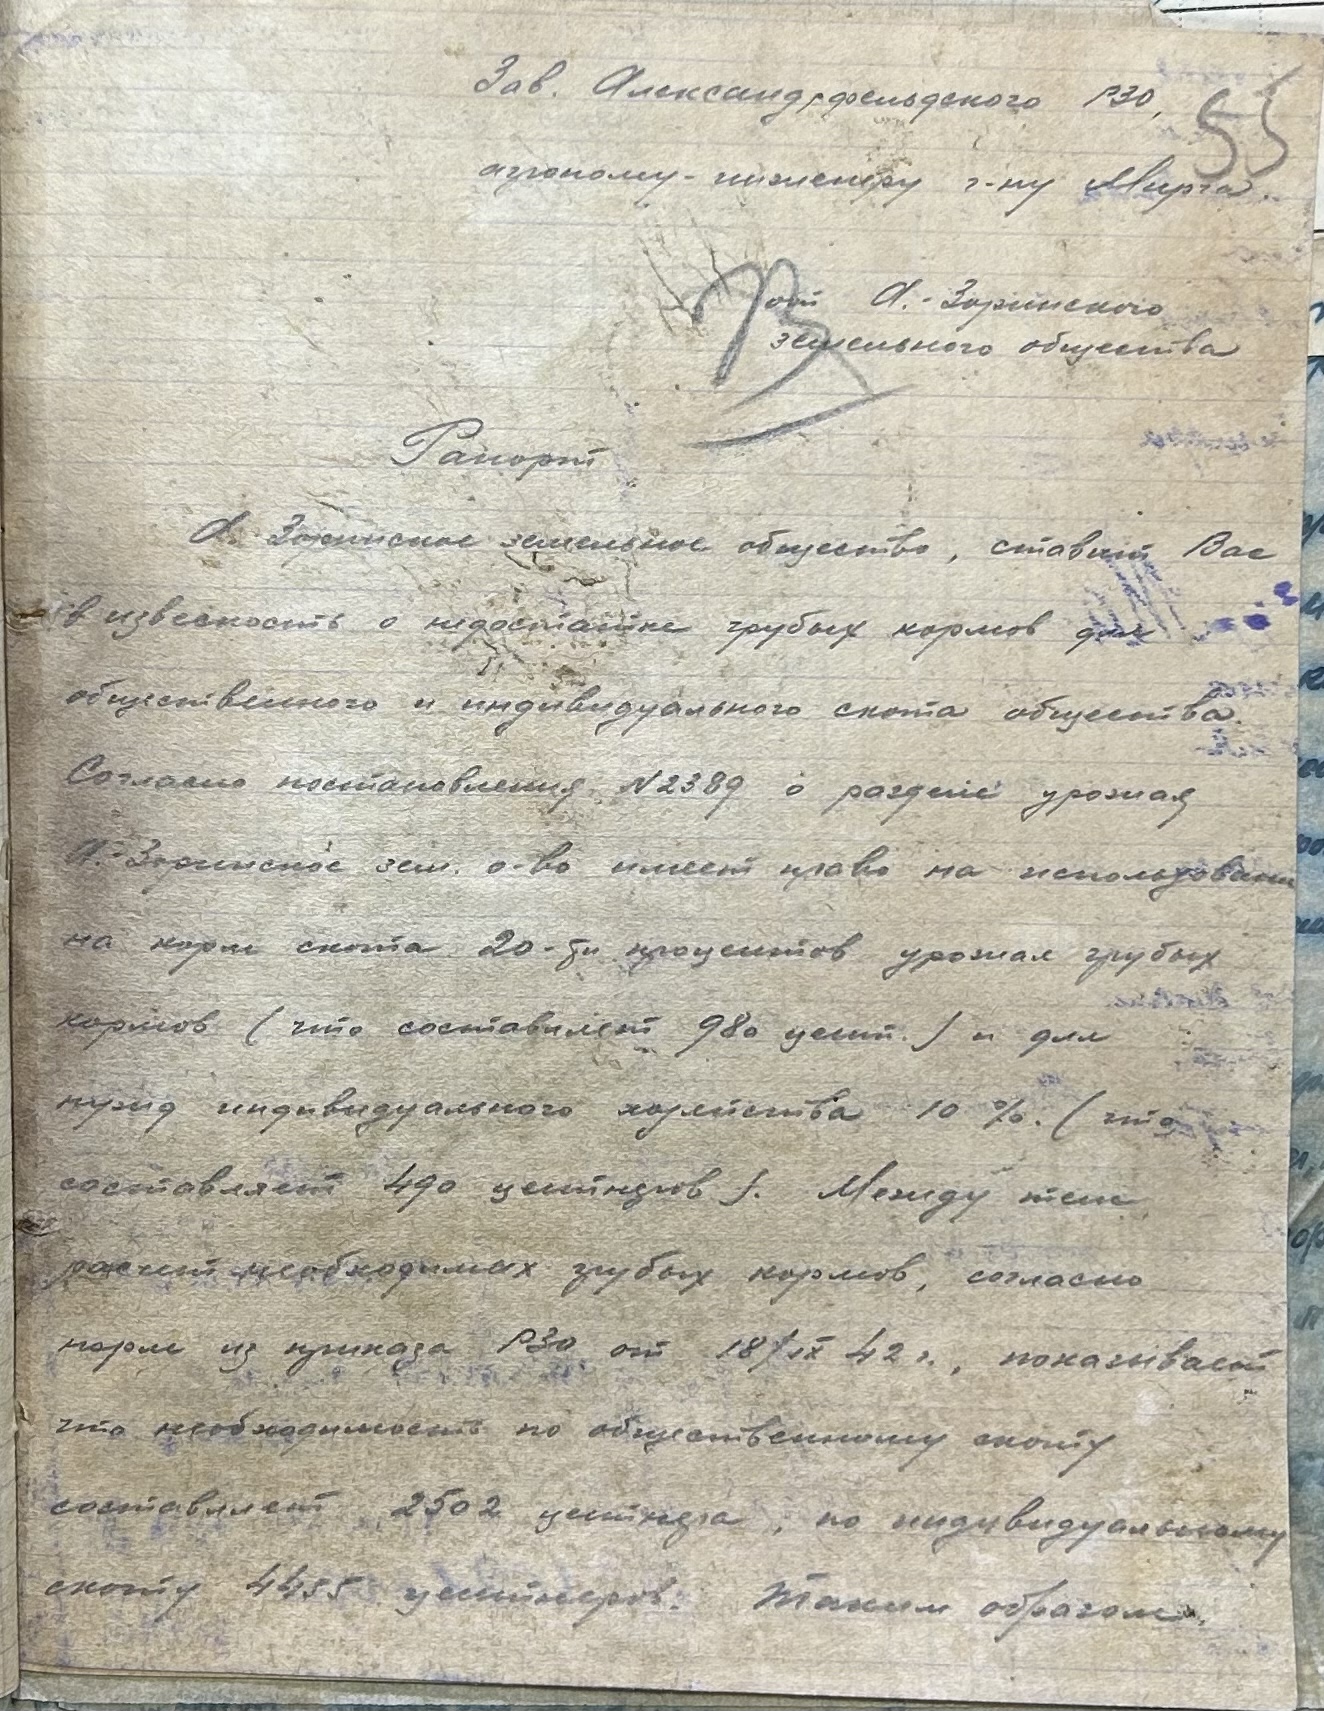 55
Зав. Александрфельдского РЗО,
агроному-инженеру г-ну Мирга.
от А.-Зоринского
земельного общества
Рапорт
А. Зоринское земельное общество, ставит Вас
в известность о недостатке грубых кормов для
общественного и индивидуального скота общества.
Согласно постановления N2389 о разделе урожая
А.-Зоринское зем. о-во имеет право на использовани
на корм скота 20-ти процентов урожая грубых
кормов (что составляет 980 цент.) и для
нужд индивидуального хозяйства 10 %. (что
составляет 490 центнеров). Между тем
расчет необходимых грубых кормов, согласно
норм из приказа РЗО от 18/IX 42 г., показывает
что необходимость по общественному скоту
составляет 2502 центнера, по индивидуальному
скоту 4455 центнеров. Таким образом,